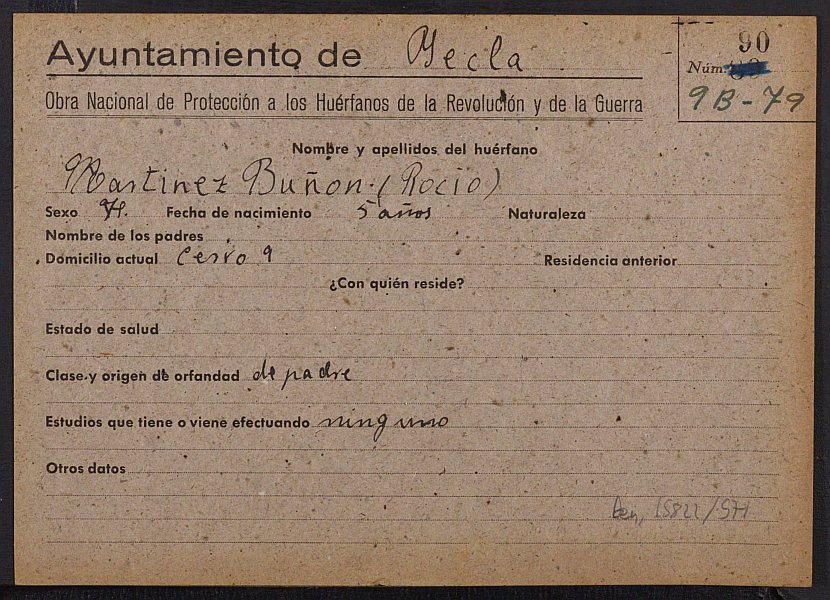 Ayuntamiento de Yecla
90
Núm.
9B-79
Obra Nacional de Protección a los Huérfanos de la Revolución y de la Guerra
Nombre y apellidos del huérfano
Martinez Buñon. (Rocio)
Sexo H. Fecha de nacimiento 5 años Naturaleza
Nombre de los padres
Domicilio actual Cerro 9 Residencia anterior
¿Con quién reside?
Estado de salud
Clase y origen de orfandad de padre
Estudios que tiene o viene efectuando ninguno
Otros datos
15822/571